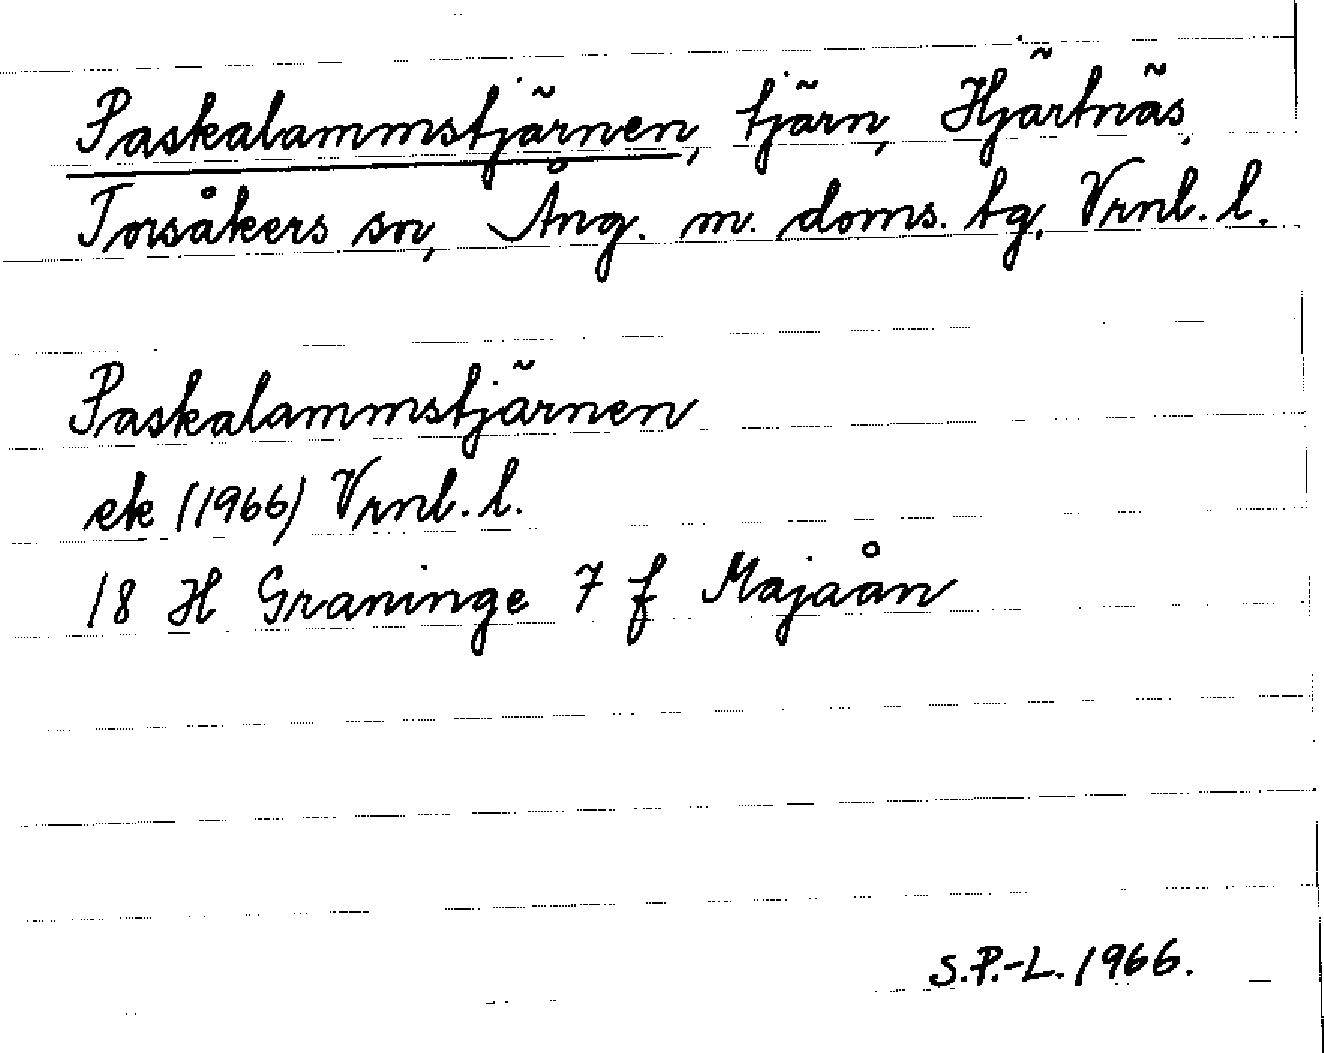 Paskalammstjärnen, tjärn, Hjärtnäs,
Torsåkers sn, Ång. m. doms. tg. Vrnl. l.
Paskalammstjärnen
ek (1966) Vrnl. l.
18 H Graninge 7 f Majaån
S.P.-L. 1966.